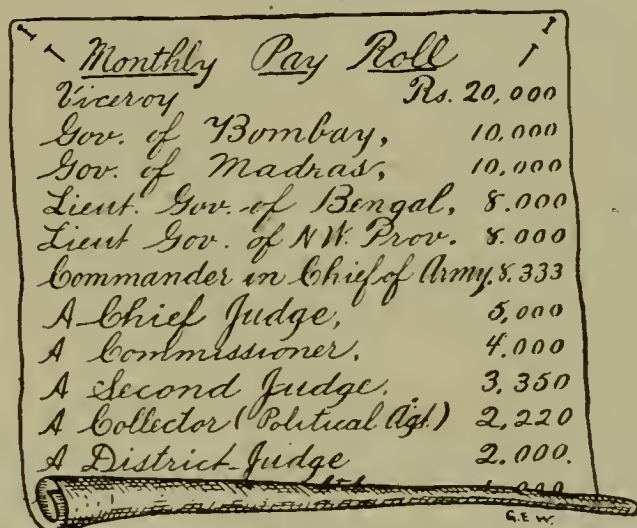 Monthly Pay Roll
Viceroy Rs. 20,000
Gov. of Bombay, 10,000
Gov. of Madras, 10,000
Lieut. Gov. of Bengal, 8.000
Lieut Gov. of N W. Prov. 8.000
Commander in Chief of Army. 8.333
A Chief Judge, 5,000
A Commissioner. 4.000
A Second Judge. 3,350
A Collector (Political Agt.) 2,220
A District Judge 2.000.
G.E.W.